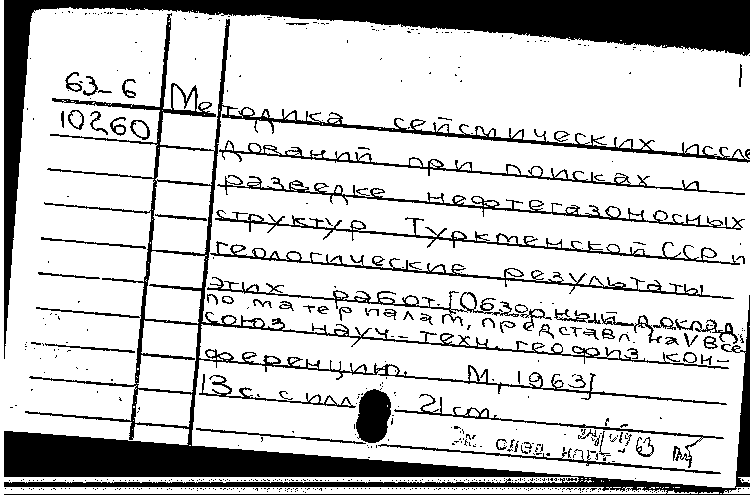 63-6
10260
Методика сейсмических иссле
дований при поисках и
разведке нефтегазоносных
структур Туркменской ССР и
геологические результаты
этих работ. [Обзорный доклад
по материалам, представл. на V Все
союз. науч.-техн. геофиз. кон-
ференцию. М., 1963]
13 с. с илл 21 см.
63